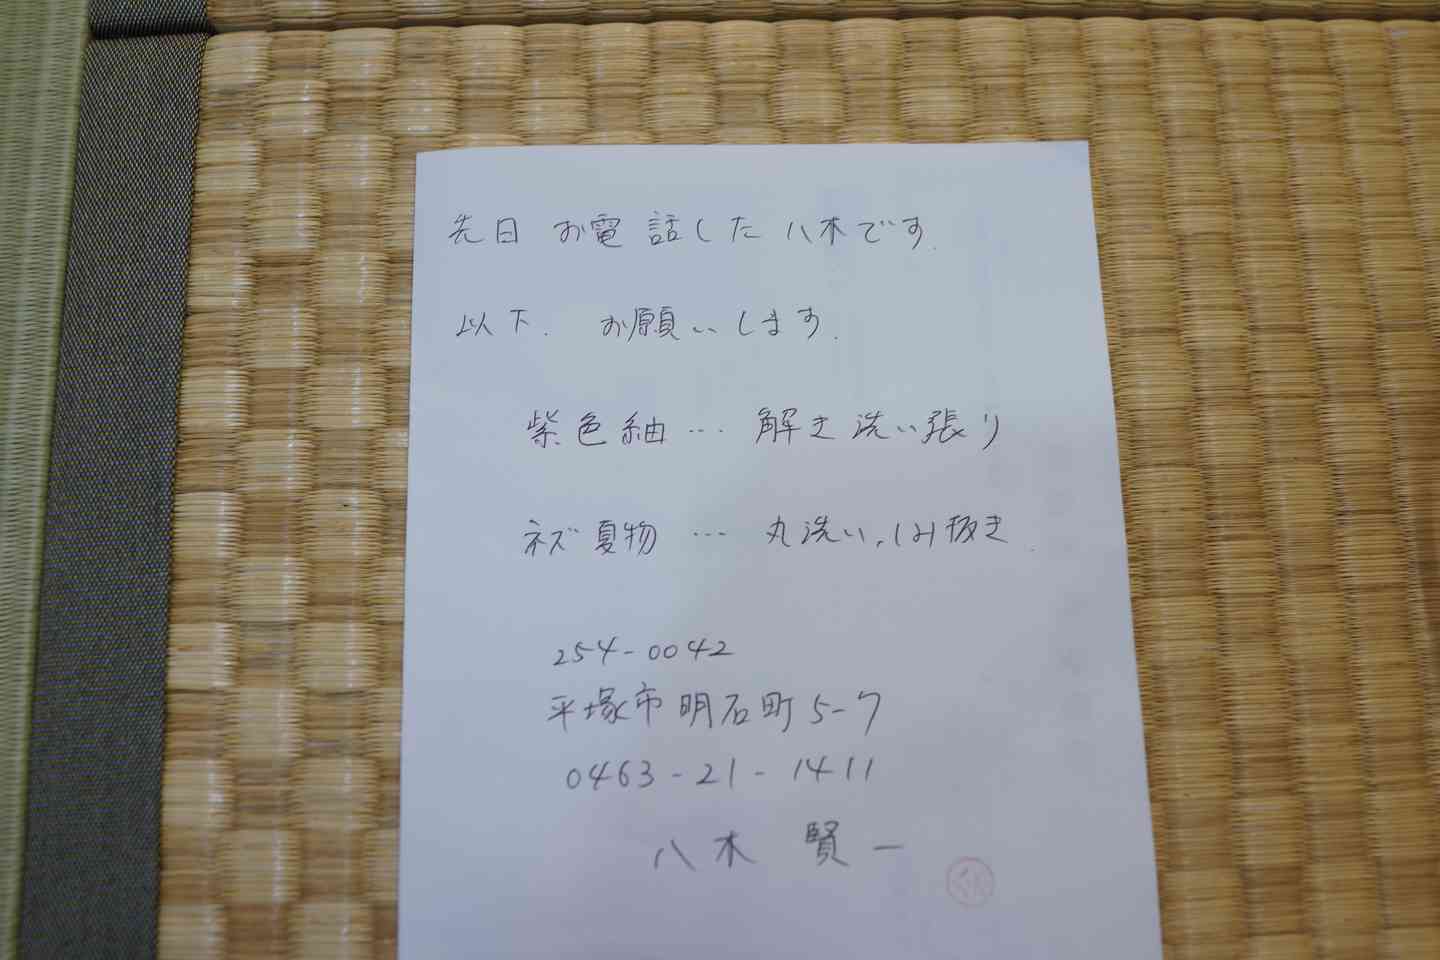 先日 お電話した八木です.
以下. お願いします.
紫色紬… 解き洗い張り
ネズ夏物 … 丸洗い,しみ抜き.
254-0042
平塚市明石町5-7
0463-21-1411
八木 賢一